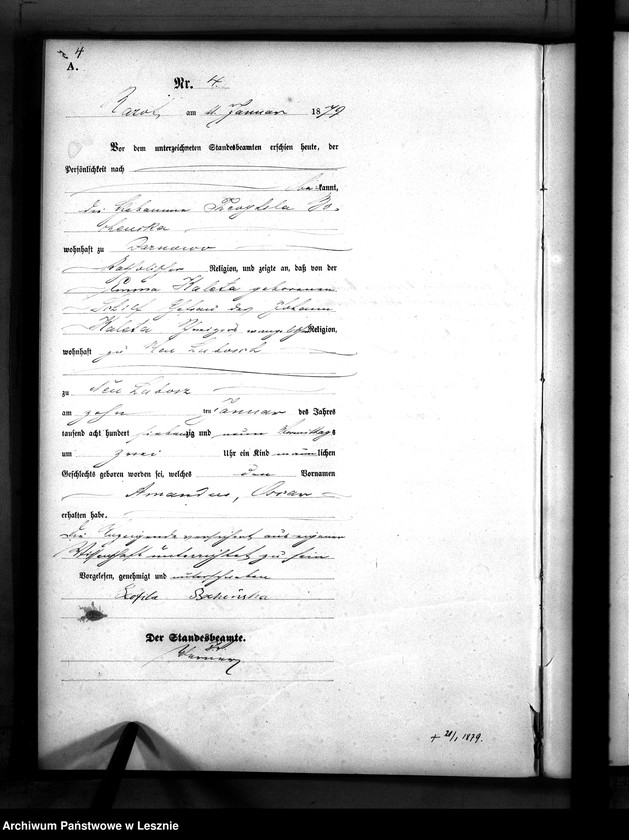 4
A.
Nr. 4.
am 11. Januar 1879
Vor dem unterzeichneten Standesbeamten erschien heute, der
Persönlichkeit nach
be kannt,
die Hebamme
wohnhaft zu
katholischer Religion, und zeigte an, daß von der
Kaleta geborenen
Ehefrau des Johann
Kaleta evangelischer Religion,
wohnhaft zu Neu Lubosch
zu Neu Lubosz
am zehn ten Januar des Jahres
tausend acht hundert siebenzig und neun Vormittags
um zwei Uhr ein Kind männlichen
Geschlechts geboren worden sei, welches den Vornamen
Amandus, Oscar
erhalten habe.
Die Anzeigende versichert aus eigener
Wissenschaft unterrichtet zu sein
Vorgelesen, genehmigt und unterschrieben
Der Standesbeamte.
+ 21/1 1879.
Archiwum Państwowe w Lesznie